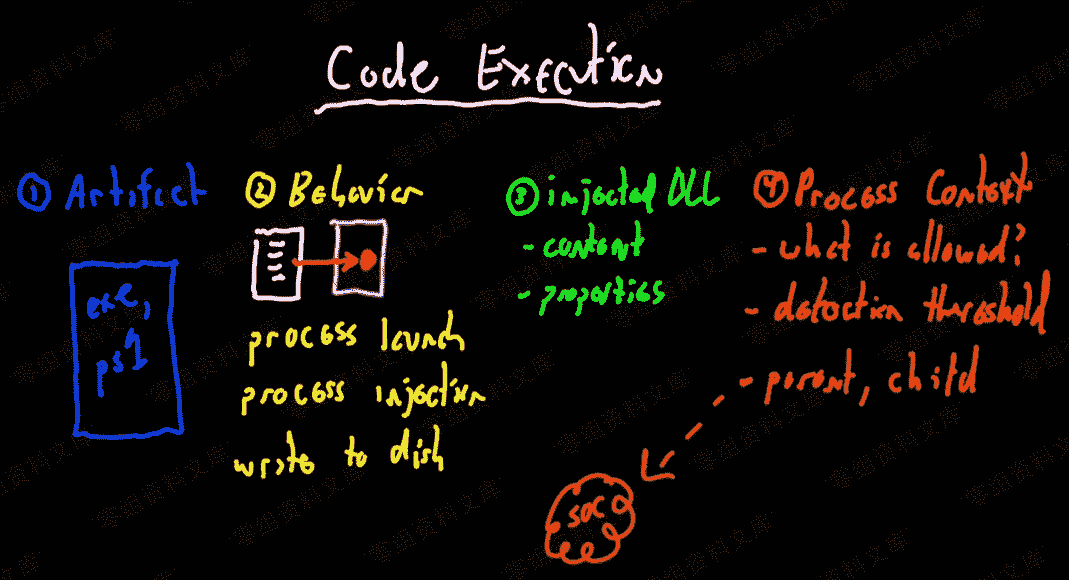 Code Execution
① Artifact
exe,
ps1
② Behavior
process launch
process injection
write to dish
③ injected DLL
- content
- properties
④ Process Context
- what is allowed?
- detection threshold
- parent, child
SOC
零组资料文库